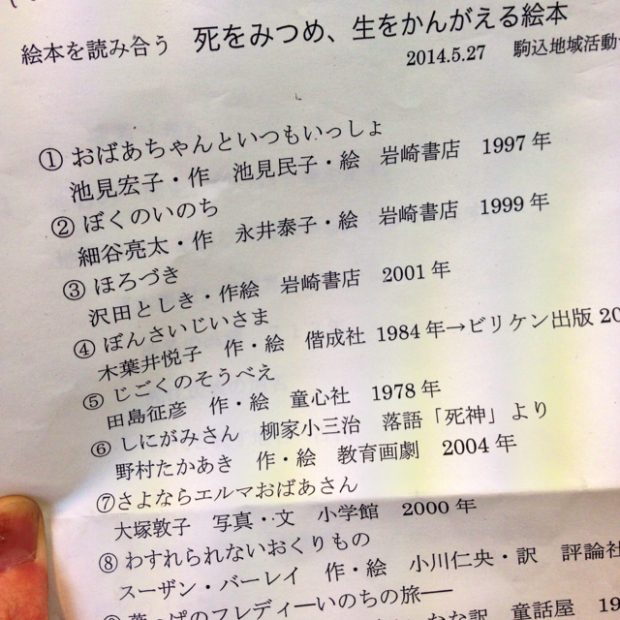 絵本を読み合う　死をみつめ、生をかんがえる絵本
2014.5.27　駒込地域活動
① おばあちゃんといつもいっしょ
池見宏子・作　池見民子・絵　岩崎書店　1997 年
② ぼくのいのち
細谷亮太・作　永井泰子・絵　岩崎書店　1999 年
③ ほろづき
沢田としき・作絵　岩崎書店　2001 年
④ ぼんさいじいさま
木葉井悦子　作・絵　偕成社　1984 年→ビリケン出版 20
⑤ じごくのそうべえ
田島征彦　作・絵　童心社　1978 年
⑥ しにがみさん　柳家小三治　落語「死神」より
野村たかあき　作・絵　教育画劇　2004 年
⑦さよならエルマおばあさん
大塚敦子　写真・文　小学館　2000 年
⑧ わすれられないおくりもの
スーザン・バーレイ　作・絵　小川仁央・訳　評論社
葉っぱのフレディ―いのちの旅―
かな訳　童話屋　19